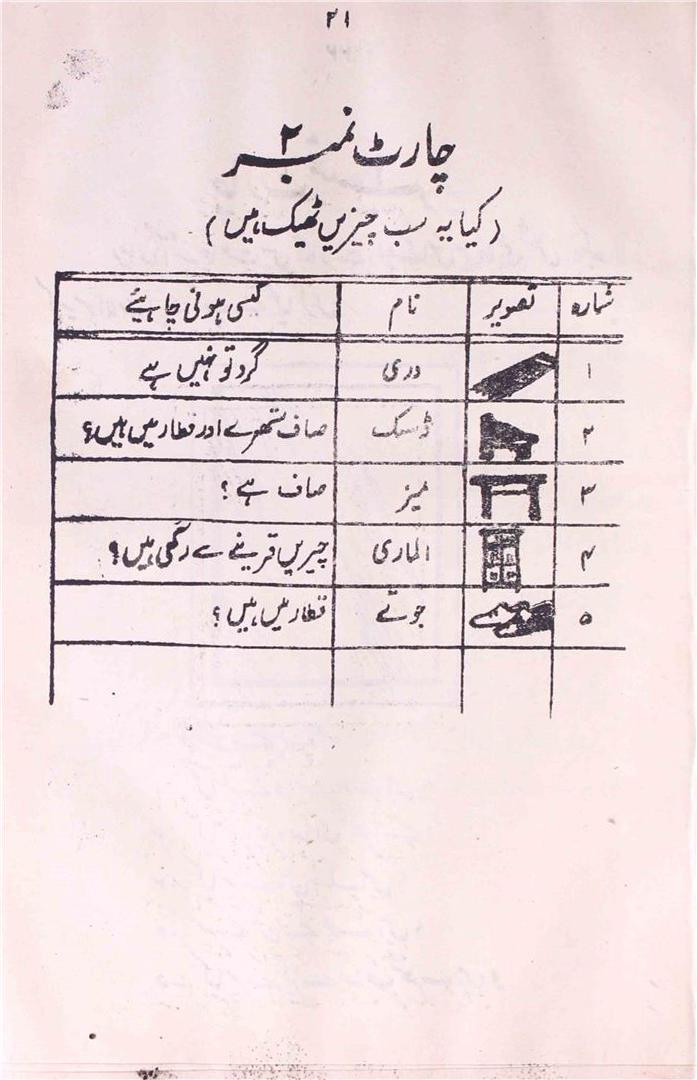 ۲۱
چارٹ نمبر ۲
(کیا یہ سب چیزیں ٹھیک ہیں)
شمارہ تصویر نام کیسی ہونی چاہیئے
۱ دری گرد تو نہیں ہے
۲ ڈسک صاف ستھرے اور قطار میں ہیں؟
۳ میز صاف ہے؟
۴ الماری چیزیں قرینے سے رکھی ہیں؟
۵ جوتے قطار میں ہیں؟